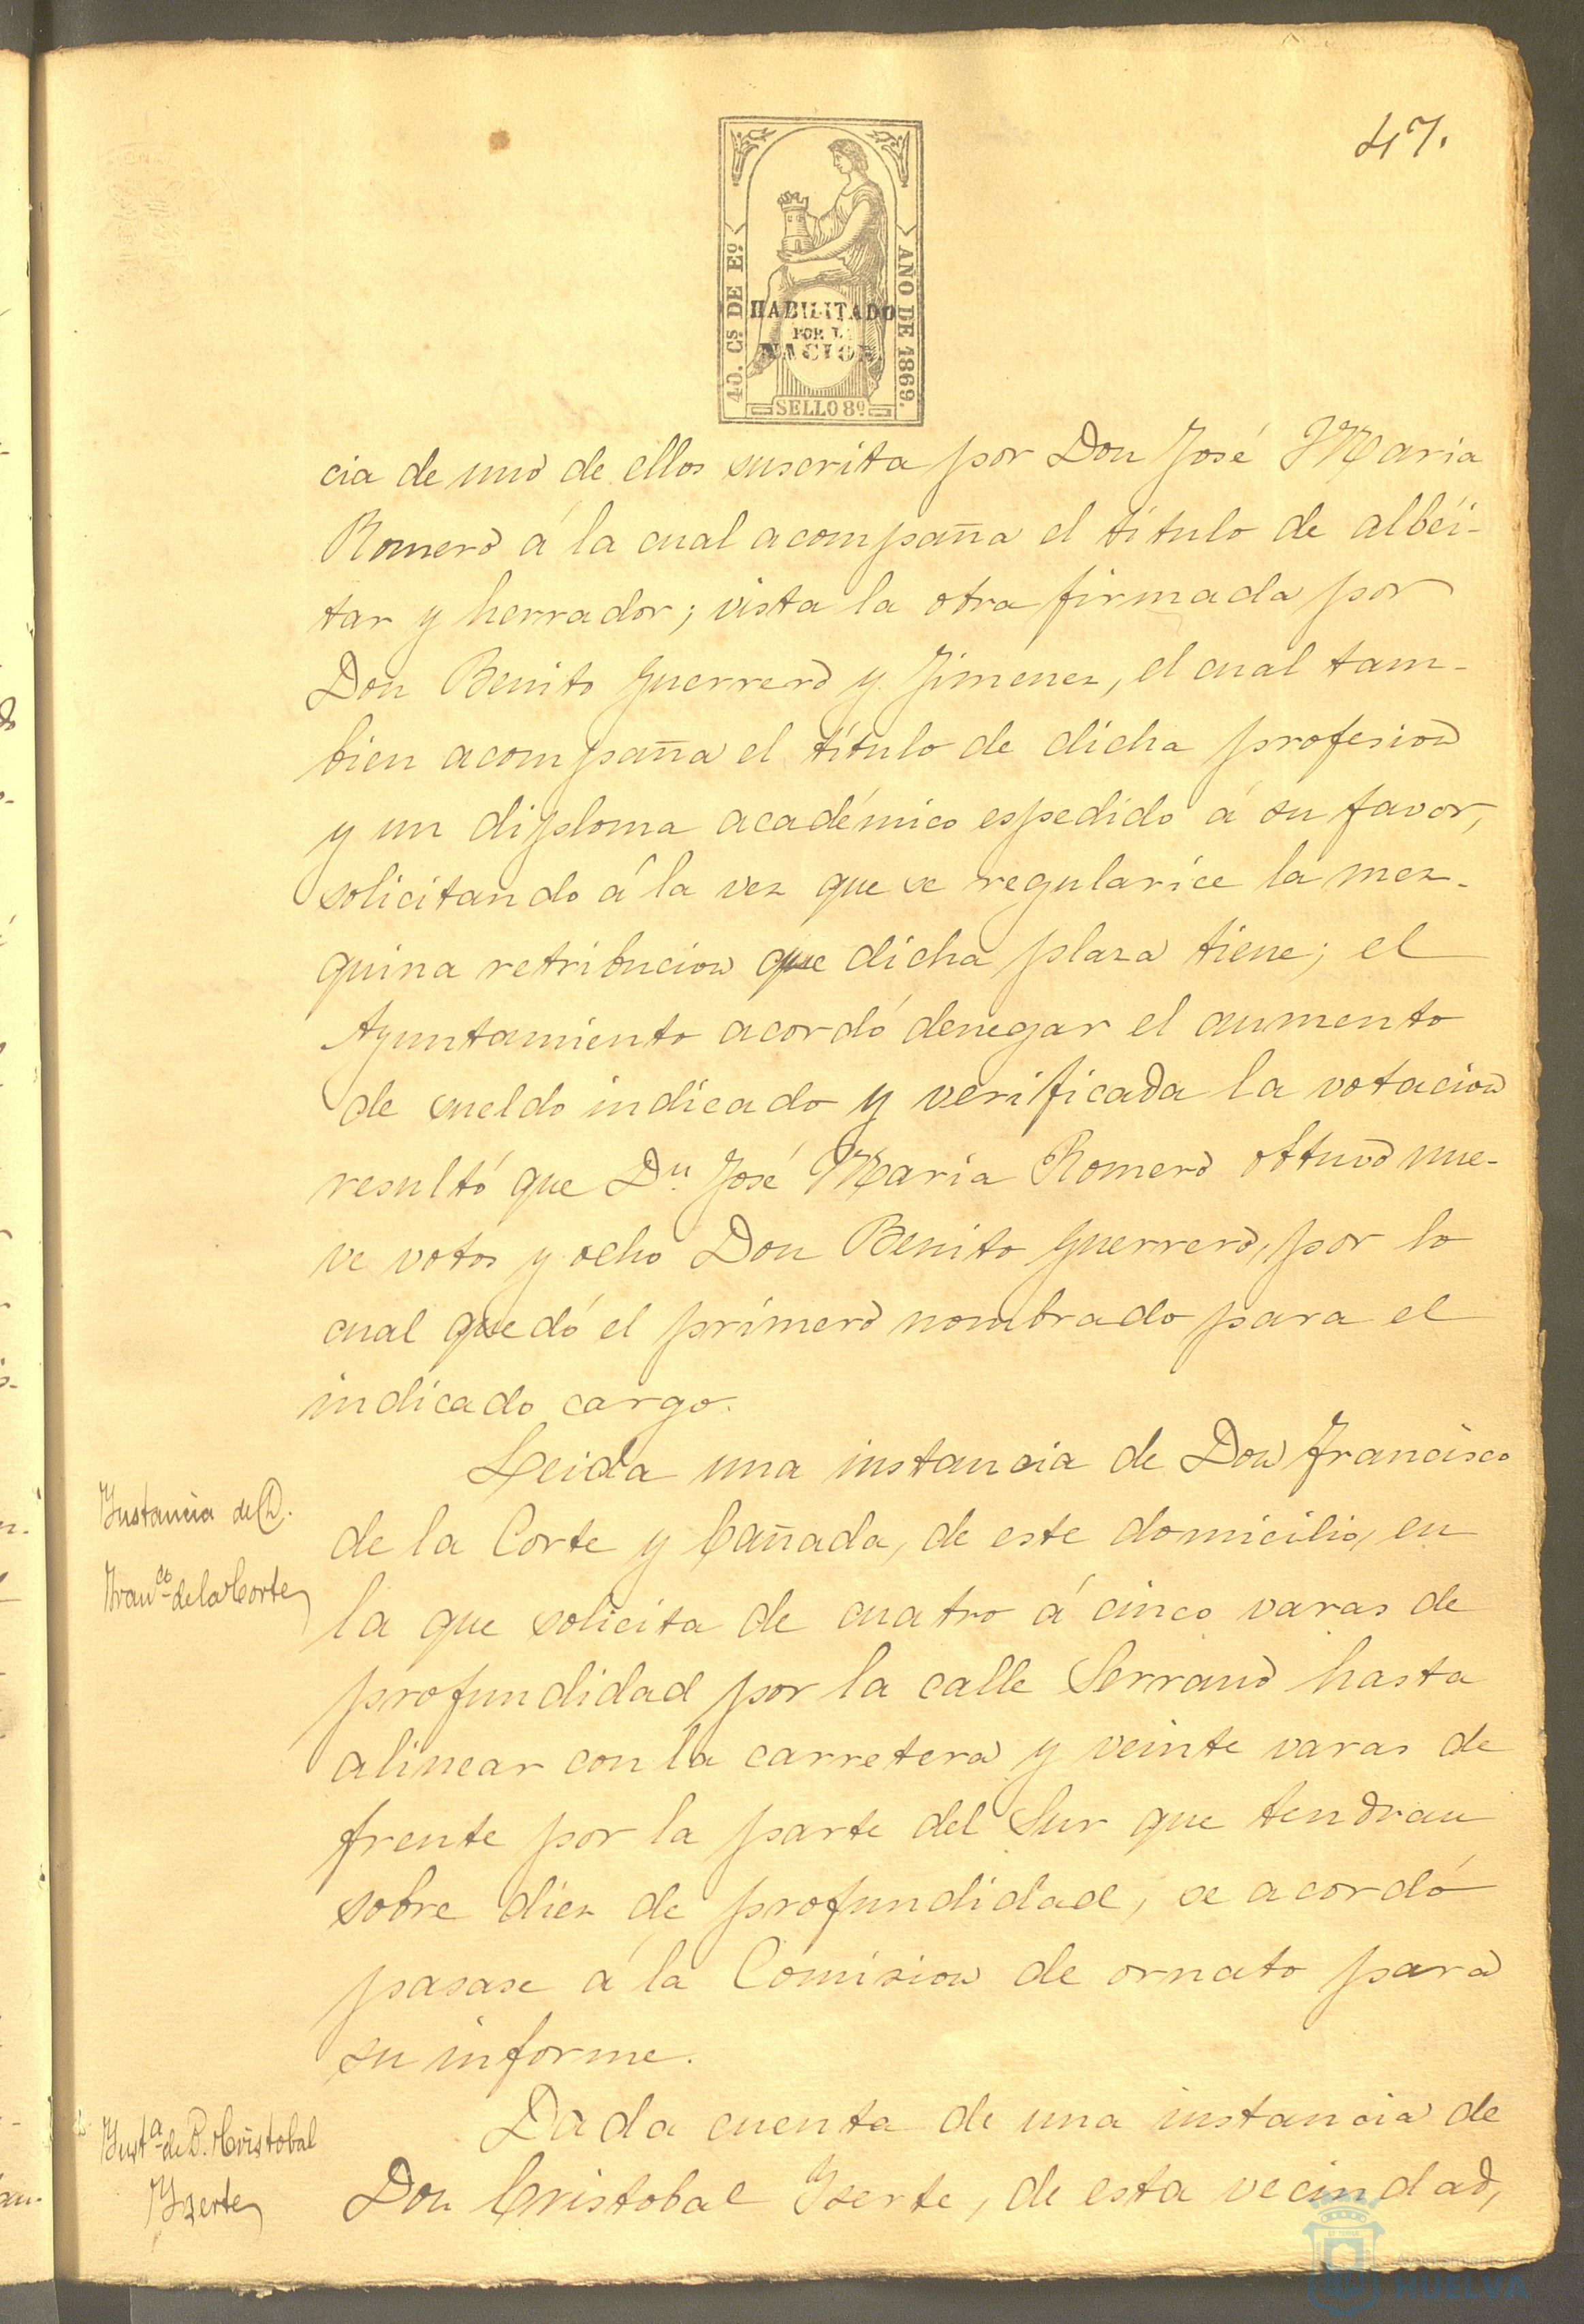 47.
40. Cs DE Eº
AÑO DE 1869.
HABILITADO
POR LA
NACION.
SELLO 8º
cia de uno de ellos suscrita por Don José Maria
Romero á la cual acompaña el título de albéi-
tar y herrador; vista la otra firmada por
Don Benito Guerrero y Jimenez, el cual tam-
bien acompaña el título de dicha profesion
y un diploma académico espedido á su favor,
solicitando á la vez que se regularice la mez-
quina retribucion que dicha plaza tiene; el
Ayuntamiento acordó denegar el aumento
de sueldo indicado y verificada la votacion
resultó que Dn. José Maria Romero obtuvo nue-
ve votos y ocho Don Benito Guerrero, por lo
cual quedó el primero nombrado para el
indicado cargo.
Instancia de D.
Franco de la Corte
Leida una instancia de Don Francisco
de la Corte y Cañada, de este domicilio, en
la que solicita de cuatro á cinco varas de
profundidad por la calle Serrano hasta
alinear con la carretera y veinte varas de
frente por la parte del Sur que tendran
sobre diez de profundidad, se acordó
pasase á la Comision de ornato para
su informe.
Insta de D. Cristobal
Yzerte
Dada cuenta de una instancia de
Don Cristobal Yzerte, de esta vecindad,
HUELVA